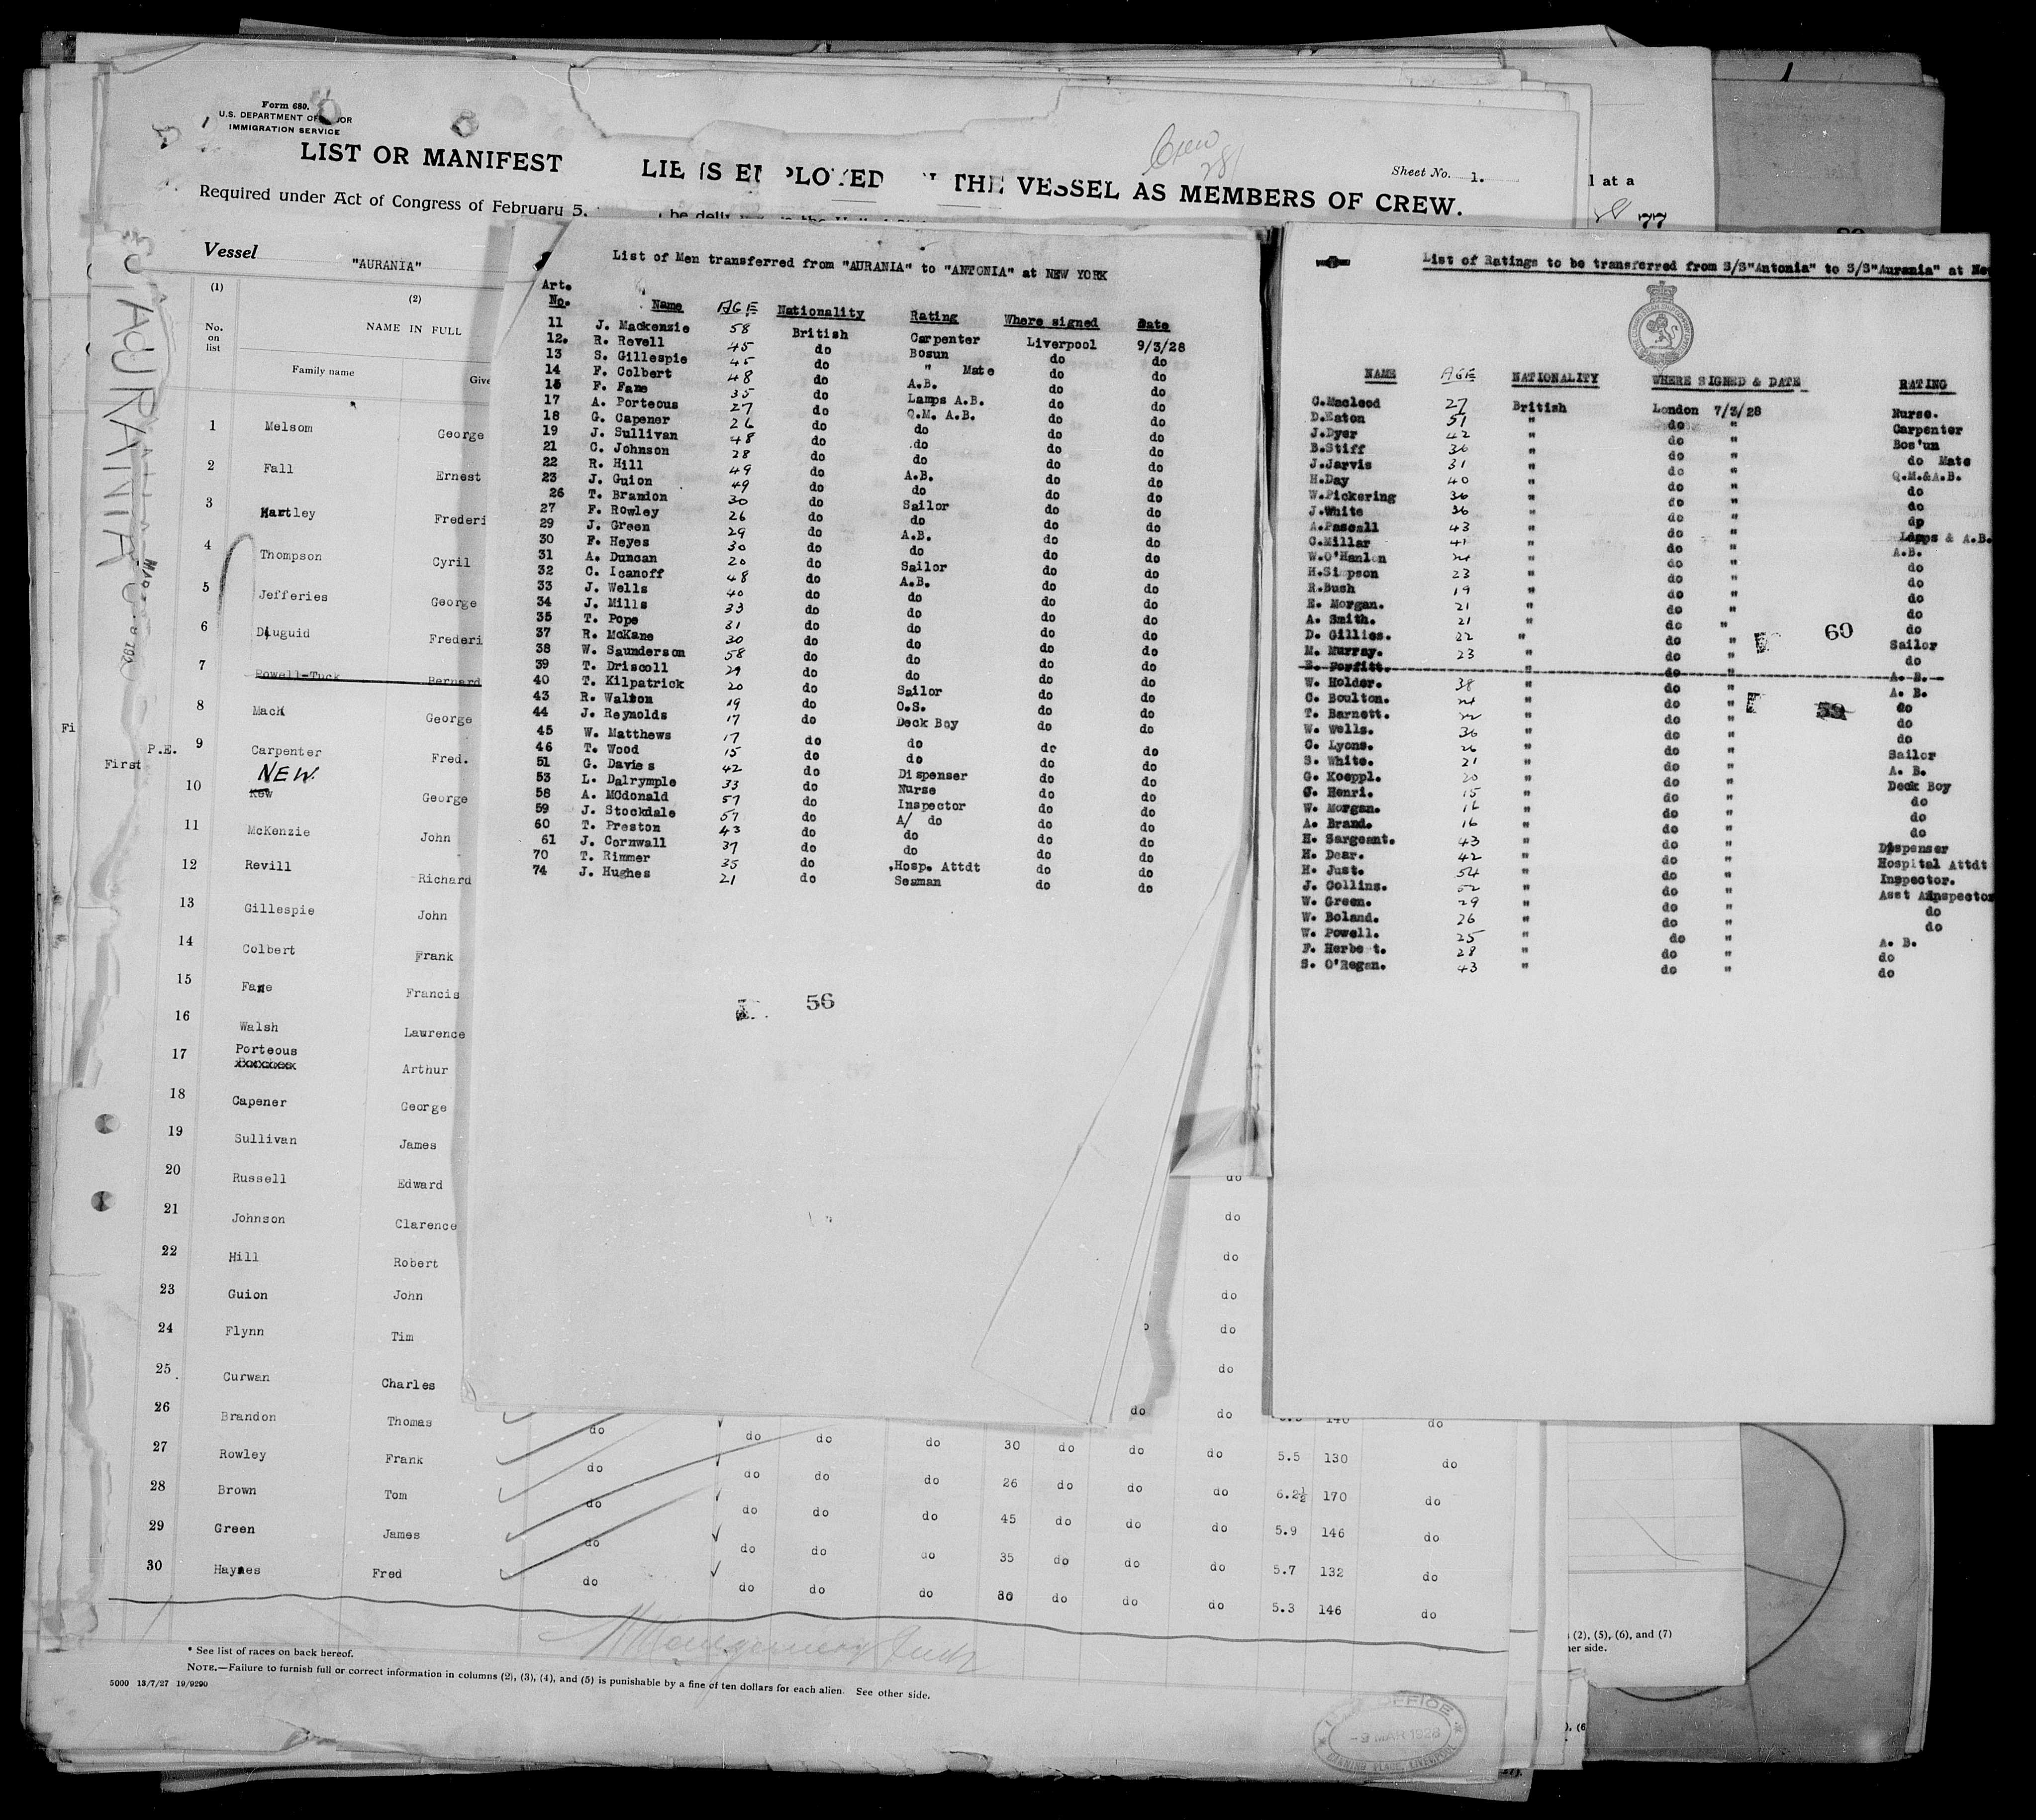 Form 680.
U.S. DEPARTMENT OF
IMMIGRATION SERVICE
LIST OR MANIFEST
THE VESSEL AS MEMBERS OF CREW.
Crew
281
Sheet No. 1.
Required under Act of Congress of February 5,
l at a
77
AURANIA
Vessel "AURANIA"
(1) (2)
No. on list
NAME IN FULL
Family name
1 Melsom George
2 Fall Ernest
3 Hartley Frederi
4 Thompson Cyril
5 Jefferies George
6 Diuguid Frederi
7 Powell-Tuck Bernard
8 Mack George
P.E. 9 Carpenter Fred.
Fi
First
NEW.
10 Kew George
11 McKenzie John
12 Revill Richard
13 Gillespie John
14 Colbert Frank
15 Fane Francis
16 Walsh Lawrence
17 Porteous Arthur
18 Capener George
19 Sullivan James
20 Russell Edward
21 Johnson Clarence
22 Hill Robert
23 Guion John
24 Flynn Tim
25 Curwan Charles
26 Brandon Thomas do do do do 30 do do do 5.5 130 do
27 Rowley Frank do do do do 26 do do do 6.2½ 170 do
28 Brown Tom do do do do 45 do do do 5.9 146 do
29 Green James do do do do 35 do do do 5.7 132 do
30 Haynes Fred do do do do 30 do do do 5.3 146 do
List of Men transferred from "AURANIA" to "ANTONIA" at NEW YORK
Art. No. Name AGE Nationality Rating Where signed Date
11 J. Mackenzie 58 British Carpenter Liverpool 9/3/28
12. R. Revell 45 do Bosun do do
13 S. Gillespie 45 do " Mate do do
14 F. Colbert 48 do A.B. do do
15 F. Fane 35 do Lamps A.B. do do
17 A. Porteous 27 do Q.M. A.B. do do
18 G. Capener 26 do do do do
19 J. Sullivan 48 do do do do
21 C. Johnson 28 do do do do
22 R. Hill 49 do A.B. do do
23 J. Guion 49 do do do do
26 T. Brandon 30 do Sailor do do
27 F. Rowley 26 do do do do
29 J. Green 29 do A.B. do do
30 F. Heyes 30 do do do do
31 A. Duncan 20 do Sailor do do
32 C. Icanoff 48 do A.B. do do
33 J. Wells 40 do do do do
34 J. Mills 33 do do do do
35 T. Pope 31 do do do do
37 R. McKane 30 do do do do
38 W. Saunderson 58 do do do do
39 T. Driscoll 29 do do do do
40 T. Kilpatrick 20 do Sailor do do
43 R. Walton 19 do O.S. do do
44 J. Reynolds 17 do Deck Boy do do
45 W. Matthews 17 do do do do
46 T. Wood 15 do do do do
51 G. Davies 42 do Dispenser do do
53 L. Dalrymple 33 do Nurse do do
58 A. MCdonald 57 do Inspector do do
59 J. Stockdale 57 do A/ do do do
60 T. Preston 43 do do do do
61 J. Cornwall 37 do do do do
70 T. Rimmer 35 do Hosp. Attdt do do
74 J. Hughes 21 do Seaman do do
56
List of Ratings to be transferred from S/S"Antonia" to S/S"Aurania" at Ne
NAME AGE NATIONALITY WHERE SIGNED & DATE RATING
C.Macleod 27 British London 7/3/28 Nurse.
D.Eaton 51 " do " Carpenter
J.Dyer 42 " do " Bos'un
B.Stiff 36 " do " do Mate
J.Jarvis 31 " do " Q.M.&A.B.
H.Day 40 " do " do
W.Pickering 36 " do " do
J.White 36 " do " do
A.Pascall 43 " do " Lamps & A.B.
C.Millar 41 " do " A.B.
W.O'Hanlon 24 " do " do
H.Simpson 23 " do " do
R.Bush 19 " do " do
E. Morgan. 21 " do " do
A. Smith. 21 " do " do
D. Gillies. 22 " do " Sailor
60
M. Murray. 23 " do " do
E. Porfitt. " do " A. B.
W. Holder. 38 " do " A. B.
C. Boulton. 24 " do " do
59
T. Barnett. 22 " do " do
W. Wells. 36 " do " do
C. Lyons. 26 " do " Sailor
S. White. 21 " do " A. B.
G. Koeppl. 20 " do " Deck Boy
J. Henri. 15 " do " do
W. Morgan. 16 " do " do
A. Brand. 16 " do " do
H. Sargeant. 43 " do " Dispenser
H. Dear. 42 " do " Hospital Attdt
H. Just. 54 " do " Inspector.
J. Collins. 52 " do " Asst Inspector
W. Green. 29 " do " do
W. Boland. 26 " do " do
W. Powell. 25 " do " A. B.
F. Herbert. 28 " do " do
S. O'Regan. 43 " do " do
* See list of races on back hereof.
NOTE.—Failure to furnish full or correct information in columns (2), (3), (4), and (5) is punishable by a fine of ten dollars for each alien. See other side.
5000 13/7/27 19/9290
(2), (5), (6), and (7)
her side.
OFFICE
-9 MAR 1928
CANNING PLACE, LIVERPOOL